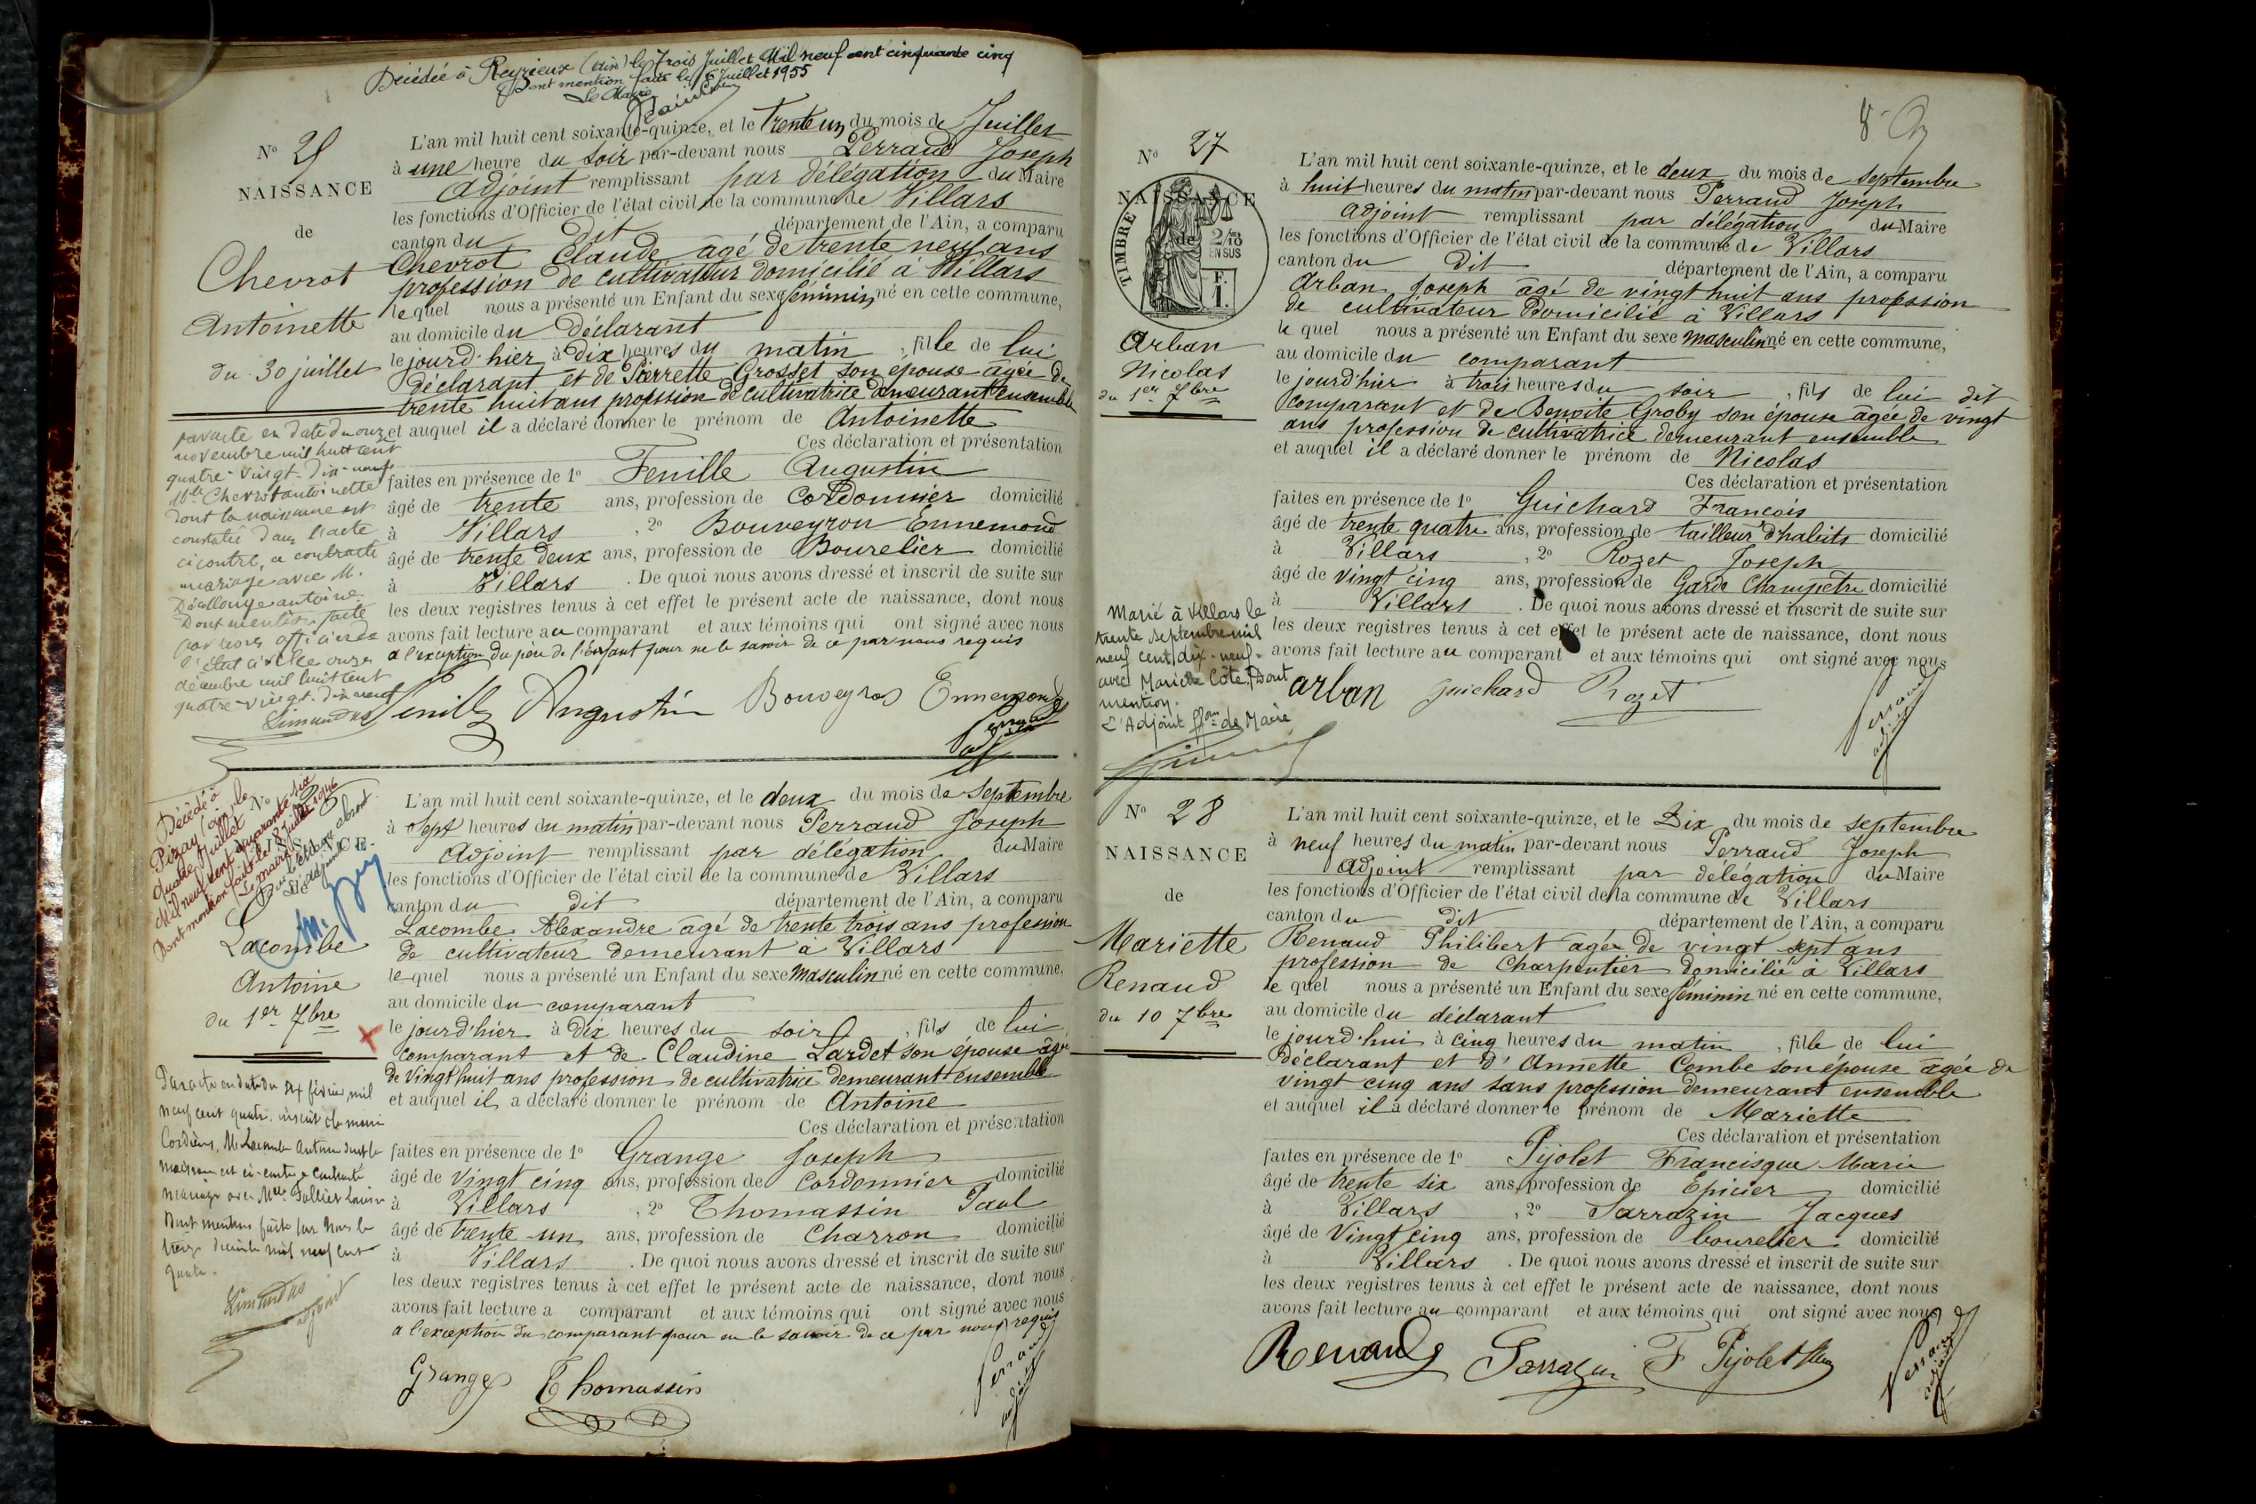 Décédée à Reyrieux (Ain) le Trois Juillet Mil neuf cent cinquante cinq
Dont mention faite le 6 Juillet 1955
Le Maire
N° 25
NAISSANCE
de
Chevrot
Antoinette
du 30 juillet
L'an mil huit cent soixante-quinze, et le trente un du mois de Juillet
à une heure du soir par-devant nous Perraud Joseph
adjoint remplissant par délégation du Maire
les fonctions d'Officier de l'état civil de la commune de Villars
canton du dit département de l'Ain, a comparu
Chevrot Claude âgé de trente neuf ans
profession de cultivateur domicilié à Villars
lequel nous a présenté un Enfant du sexe féminin né en cette commune,
au domicile du déclarant
le jourd'hier à dix heures du matin, fille de lui
déclarant et de Pierrette Grosset son épouse agée de
trente huit ans profession de cultivatrice demeurant ensemble
et auquel il a déclaré donner le prénom de Antoinette
Ces déclaration et présentation
faites en présence de 1° Fenille Augustin
âgé de trente ans, profession de Cordonnier domicilié
à Villars, 2° Bouveyron Ennemond
âgé de trente deux ans, profession de Bourelier domicilié
à Villars. De quoi nous avons dressé et inscrit de suite sur
les deux registres tenus à cet effet le présent acte de naissance, dont nous
avons fait lecture au comparant et aux témoins qui ont signé avec nous
a l'exception du père de l'enfant pour ne le savoir de ce par nous requis
par acte en date du onze
novembre mil huit cent
quatre-vingt-dix-neuf
Mlle Chevrot antoinette
dont la naissance est
constatée dans l'acte
ci contre, a contracté
mariage avec M.
Décollonge antoine.
Dont mention faite
par nous officier de
l'état civil le onze
décembre mil huit cent
quatre-vingt-dix neuf
Limandas
Fenille Augustin Bouveyron Ennemond
Perraud
adj
Décédé à
Pizay (Ain) le
quatre Juillet
Mil neuf cent quarante six
Dont mention faite le 8 Juillet 1946
Le Maire
L'adjoint
N°
NAISSANCE
Lacombe
Antoine
du 1er 7bre
L'an mil huit cent soixante-quinze, et le deux du mois de Septembre
à Sept heures du matin par-devant nous Perraud Joseph
adjoint remplissant par délégation du Maire
les fonctions d'Officier de l'état civil de la commune de Villars
canton du dit département de l'Ain, a comparu
Lacombe Alexandre agé de trente trois ans profession
de cultivateur demeurant à Villars
lequel nous a présenté un Enfant du sexe masculin né en cette commune,
au domicile du comparant
le jourd'hier à dix heures du soir, fils de lui
comparant et de Claudine Lardet son épouse âgée
de vingt huit ans profession de cultivatrice demeurant ensemble
et auquel il a déclaré donner le prénom de Antoine
Ces déclaration et présentation
faites en présence de 1° Grange Joseph
âgé de vingt cinq ans, profession de cordonnier domicilié
à Villars, 2° Thomassin Paul
âgé de trente-un ans, profession de charron domicilié
à Villars. De quoi nous avons dressé et inscrit de suite sur
les deux registres tenus à cet effet le présent acte de naissance, dont nous
avons fait lecture a comparant et aux témoins qui ont signé avec nous
a l'exception du comparant pour ne le savoir de ce par nous requis
Par acte en date du six février mil
neuf cent quatre. inscrit à la mairie
Cordieux, M. Lacombe Antoine dont la
naissance est ci-contre a contracté
mariage avec Mlle Louise
Dont mention faite par Nous le
treize mil neuf cent
quatre.
Limandas
adjoint
Grange Thomassin
Perraud
adjoint
8
N° 27
NAISSANCE
de
TIMBRE
2/10
EN SUS
F.
1.
Arban
Nicolas
du 1er 7bre
L'an mil huit cent soixante-quinze, et le deux du mois de septembre
à huit heures du matin par-devant nous Perraud Joseph
adjoint remplissant par délégation du Maire
les fonctions d'Officier de l'état civil de la commune de Villars
canton du dit département de l'Ain, a comparu
Arban Joseph âgé de vingt huit ans profession
de cultivateur Domicilié à Villars
le quel nous a présenté un Enfant du sexe masculin né en cette commune,
au domicile du comparant
le jourd'hier à trois heures du soir, fils de lui dit
comparant et de Benoite Groby son épouse âgée de vingt
ans profession de cultivatrice demeurant ensemble
et auquel il a déclaré donner le prénom de Nicolas
Ces déclaration et présentation
faites en présence de 1° Guichard François
âgé de trente quatre ans, profession de tailleur d'habits domicilié
à Villars, 2° Rozet Joseph
âgé de vingt cinq ans, profession de Garde Champêtre domicilié
à Villars. De quoi nous avons dressé et inscrit de suite sur
les deux registres tenus à cet effet le présent acte de naissance, dont nous
avons fait lecture au comparant et aux témoins qui ont signé avec nous
Marié à Villars le
trente Septembre mil
neuf cent dix-neuf
avec Mariette Côte. Dont
mention.
L'Adjoint ffon de Maire
arban guichard Rozet
Perraud
adjoint
N° 28
NAISSANCE
de
Mariette
Renaud
du 10 7bre
L'an mil huit cent soixante-quinze, et le Dix du mois de septembre
à neuf heures du matin par-devant nous Perraud Joseph
adjoint remplissant par délégation du Maire
les fonctions d'Officier de l'état civil de la commune de Villars
canton du dit département de l'Ain, a comparu
Renaud Philibert agée de vingt sept ans
profession de Charpentier domicilié à Villars
le quel nous a présenté un Enfant du sexe féminin né en cette commune,
au domicile du déclarant
le jourd'hui à cinq heures du matin, fille de lui
déclarant et d'Annette Combe son épouse âgée de
vingt cinq ans sans profession demeurant ensemble
et auquel il a déclaré donner le prénom de Mariette
Ces déclaration et présentation
faites en présence de 1° Pijolet Francisque Marie
âgé de trente six ans, profession de Epicier domicilié
à Villars, 2° Sarrazin Jacques
âgé de vingt cinq ans, profession de bourelier domicilié
à Villars. De quoi nous avons dressé et inscrit de suite sur
les deux registres tenus à cet effet le présent acte de naissance, dont nous
avons fait lecture au comparant et aux témoins qui ont signé avec nous
Renaud Sarrazin F Pijolet
Perraud
adjoint